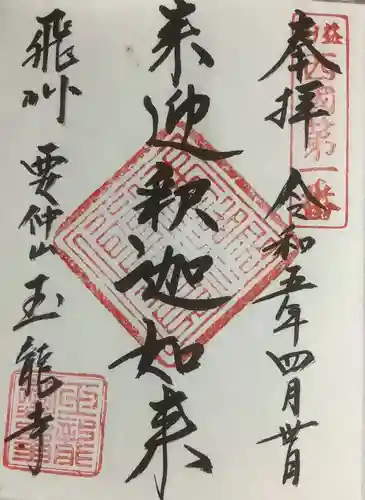 益田
西國第一番
奉拝 令和五年四月丗日
来迎釈迦如来
飛州 要仲山 玉龍寺